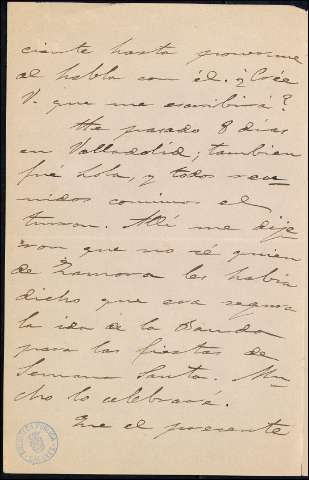 ciente hasta ponerme
al habla con él. ¿Crée
V. que me escribirá?
He pasado 8 dias
en Valladolid; tambien
fué Lola, y todos reu
nidos comimos el
turron. Alli me dije
ron que no sé quien
de Zamora les habia
dicho que era segura
la ida de la Banda
para las fiestas de
Semana Santa. Mu
cho lo celebrará.
Que el presente
BIBLIOTECA PUBLICA